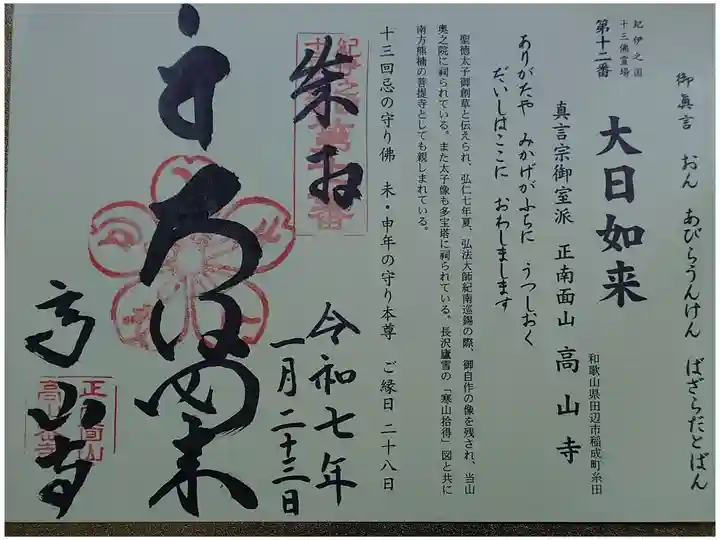 御真言　おん　あびらうんけん　ばざらだとばん
紀伊之国
十三佛霊場
第十二番
大日如来
和歌山県田辺市稲成町糸田
真言宗御室派　正南面山　高山寺
ありがたや　みかげがふちに　うつしおく
だいしはここに　おわしまします
聖徳太子御創草と伝えられ、弘仁七年夏、弘法大師紀南巡錫の際、御自作の像を残され、当山
奥之院に祠られている。また太子像も多宝塔に祠られている。長沢廬雪の「寒山拾得」図と共に
南方熊楠の菩提寺としても親しまれている。
十三回忌の守り佛　未・申年の守り本尊　ご縁日　二十八日
奉拝
第十二番
令和七年
一月二十三日
大日如来
高山寺
正南面山
高山寺